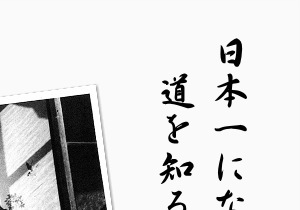 日本一にな
道を知る